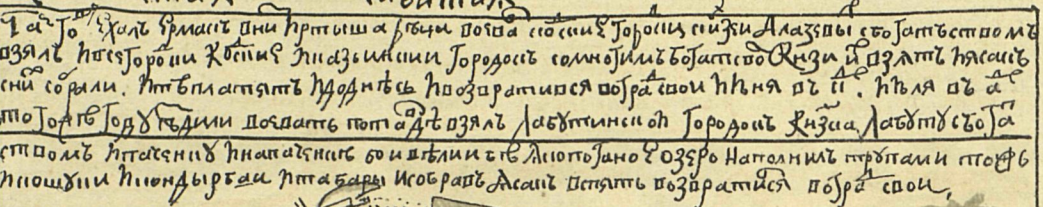 ѣхалъ Ермакъ вни Иртыша рѣки воева кодские городки Алачевы з богатъством
взял и все городки Кодцкие и Назымскии городокъ со многимъ богатство князи взятъ и ясакъ
с них собрали. и тѣ платятъ и доднѣсь и возвратився во град свои июня въ июля въ
того ж году ѣздили воевать по тавдѣ взял Лабутинскои городокъ княза Лабуту с бога
ством и паченку и на паченке бои велии яко поганое озеро наполнилъ трупами то ж
и кошуки и кондырбаи и табары и собравъ ясакъ вспять возвратися во град свои